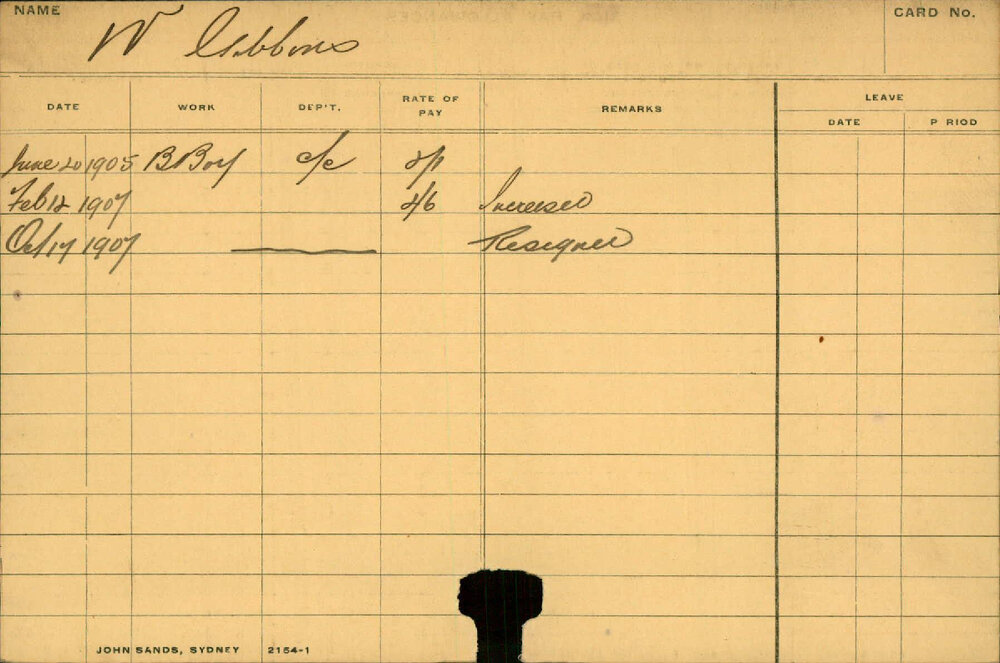 NAME
W Gibbons
CARD No.
DATE WORK DEP'T. RATE OF PAY REMARKS LEAVE
DATE P RIOD
June 20 1905 B Boy c/c
Feb 12 1907 2/6 Increased
Oct 17 1907 Resigned
JOHN SANDS, SYDNEY 2154-1